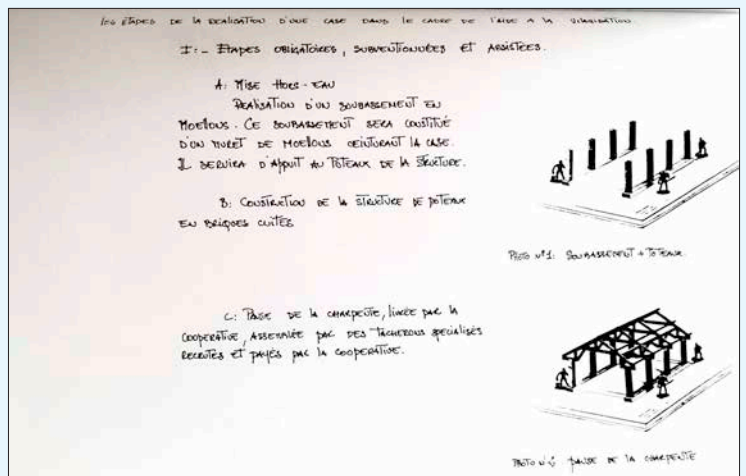 LES ÉTAPES DE LA REALISATION D'UNE CASE DANS LE CADRE DE L'AIDE A LA
I:- ETAPES OBLIGATOIRES, SUBVENTIONNÉES ET ASSISTÉES.
A: MISE HORS-EAU
REALISATION D'UN SOUBASSEMENT EN
MOELLONS. CE SOUBASSEMENT SERA CONSTITUÉ
D'UN MURET DE MOELLONS CEINTURANT LA CASE.
IL SERVIRA D'APPUIT AU POTEAUX DE LA STRUCTURE.
B: CONSTRUCTION DE LA STRUCTURE DE POTEAUX
EN BRIQUES CUITES
PHOTO N°1: SOUBASSEMENT + POTEAUX
C: PAUSE DE LA CHARPENTE, LIVRÉE PAR LA
COOPERATIVE, ASSEMBLÉE PAR DES TACHERONS SPECIALISÉS
RECRUTÉS ET PAYÉS PAR LA COOPERATIVE.
PHOTO PAUSE DE LA CHARPENTE